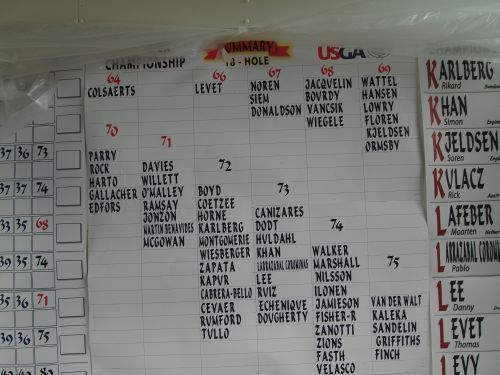 CHAMPIONSHIP
SUMMARY
18 - HOLE
USGA
64
COLSAERTS
66
LEVET
67
NOREN
SIEM
DONALDSON
68
JACQVELIN
BOVRDY
VANCSIK
WIEGELE
69
WATTEL
HANSEN
LOWRY
FLOREN
KJELDSEN
ORMSBY
70
PARRY
ROCK
HARTO
GALLACHER
EDFORS
71
DAVIES
WILLETT
O'MALLEY
RAMSAY
JONZON
MARTIN BENAVIDES
MCGOWAN
72
BOYD
COETZEE
HORNE
KARLBERG
MONTGOMERIE
WIESBERGER
ZAPATA
KAPUR
CABRERA-BELLO
CEVAER
RUMFORD
TULLO
73
CANIZARES
DODT
HVLDAHL
KHAN
LARRAZABAL COROMINAS
LEE
RVIZ
ECHENIQVE
DOVGHERTY
74
WALKER
MARSHALL
NILSSON
ILONEN
JAMIESON
FISHER-R
ZANOTTI
ZIONS
FASTH
VELASCO
75
VAN DER WALT
KALEKA
SANDELIN
GRIFFITHS
FINCH
KARLBERG
Rikard
KHAN
Simon
KJELDSEN
Soren
KVLACZ
Rick
LAFEBER
Maarten
Pablo
LEE
Danny
LEVET
Thomas
LEVY
37 36 73
37 37 74
33 35 68
39 35 74
35 36 71
40 35 75